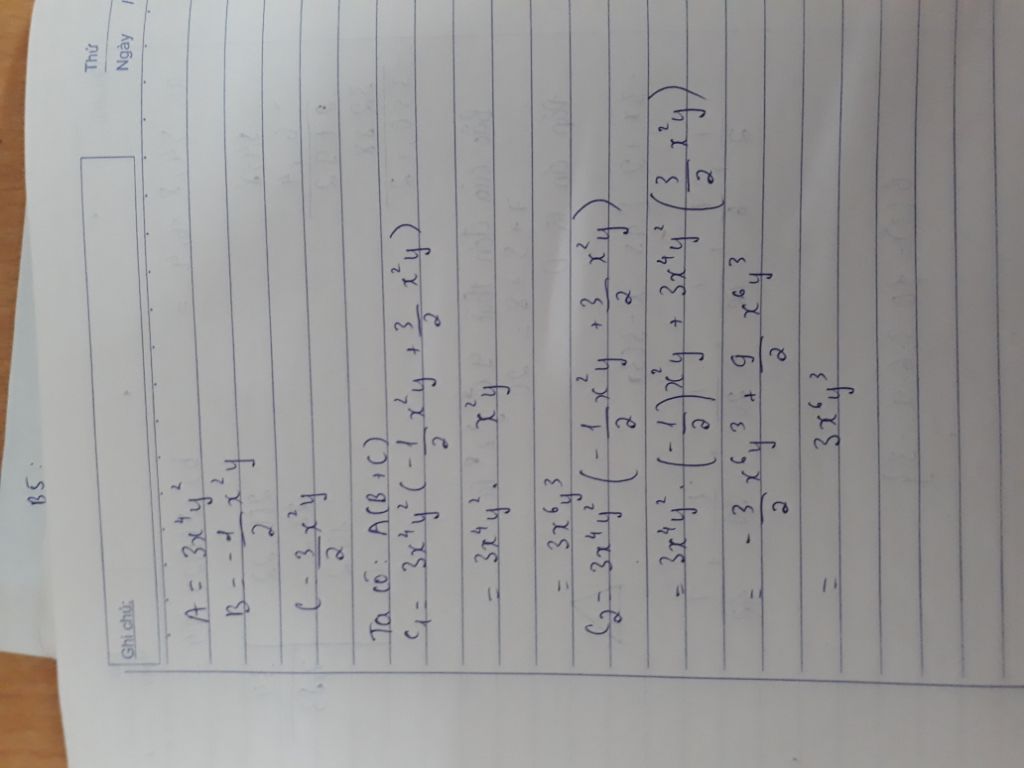 B5:
Thứ
Ngày
Ghi chú:
A = 3x⁴y²
B = -1/2 x²y
C = 3/2 x²y
Ta có: A(B+C)
C₁ = 3x⁴y² (-1/2 x²y + 3/2 x²y)
= 3x⁴y² . x²y
= 3x⁶y³
C₂ = 3x⁴y² (-1/2 x²y + 3/2 x²y)
= 3x⁴y² . (-1/2) x²y + 3x⁴y² (3/2 x²y)
= -3/2 x⁶y³ + 9/2 x⁶y³
= 3x⁶y³